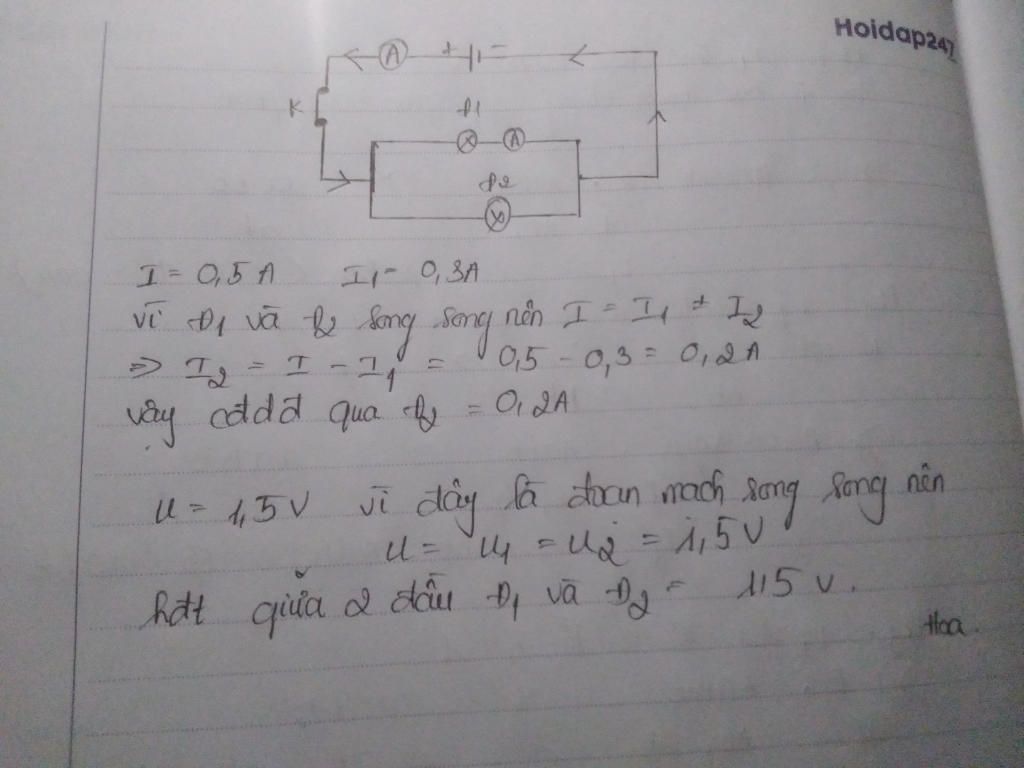 Hoidap247
A + -
K
Đ1
A
Đ2
I = 0,5 A I1 = 0,3A
vì Đ1 và Đ2 song song nên I = I1 + I2
=> I2 = I - I1 = 0,5 - 0,3 = 0,2 A
vậy cđdđ qua Đ2 = 0,2A
U = 1,5V vì đây là đoạn mạch song song nên
U = U1 = U2 = 1,5V
hđt giữa 2 đầu Đ1 và Đ2 = 1,5 V.
Hoa.